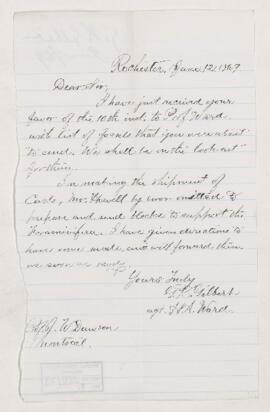 Rochester, June 12, 1869
Dear Sir,
I have just received your
favor of the 10th inst. to Prof Ward
with list of fossils that you were about
to send. We shall be on the look-out
for them.
In making the shipment of
Casts, Mr. Howell by error omitted to
prepare and send blocks to support the
Foraminifera. I have given directions to
have some made and will forward them
as soon as ready.
Yours Truly
G. K. Gilbert
agt. H. A. Ward.
J. W. Dawson
Montreal.